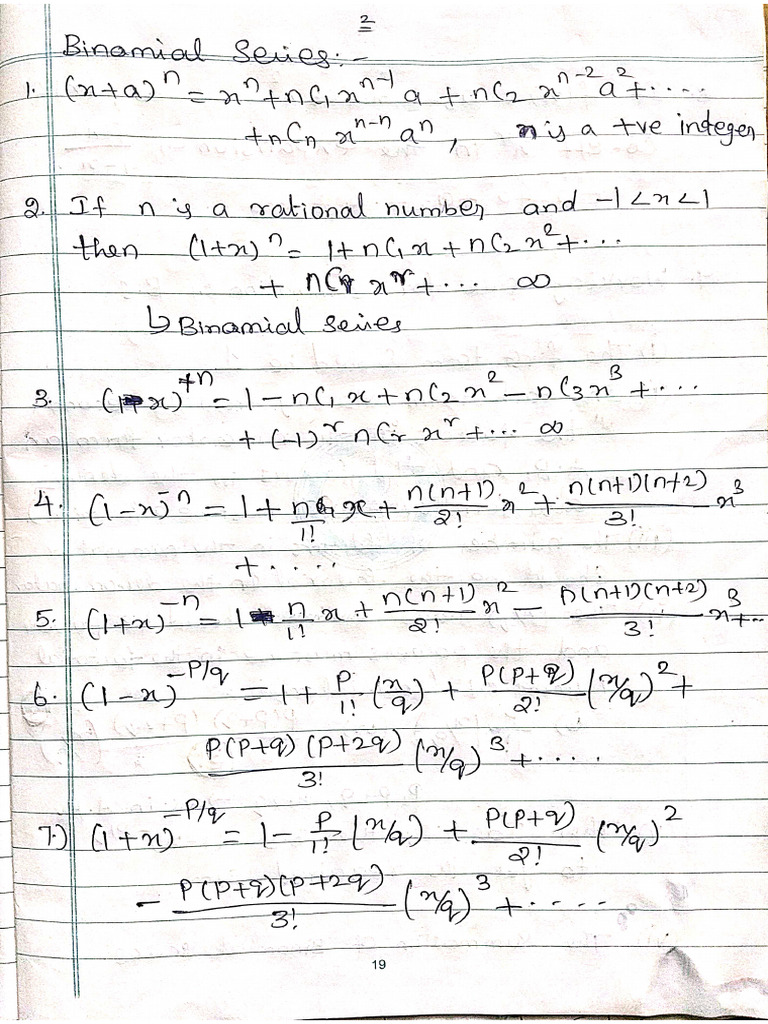 2
Binamial Series:-
1. (x+a)^n = x^n + nC1 x^(n-1) a + nC2 x^(n-2) a^2 + ....
+ nCn x^(n-n) a^n, n is a +ve integer
2. If n is a rational number and -1 < x < 1
then (1+x)^n = 1 + nC1 x + nC2 x^2 + ...
+ nCr x^r + ... ∞
↳ Binamial series
3. (1-x)^+n = 1 - nC1 x + nC2 x^2 - nC3 x^3 + ...
+ (-1)^r nCr x^r + ... ∞
4. (1-x)^-n = 1 + n/1! x + n(n+1)/2! x^2 + n(n+1)(n+2)/3! x^3
+ ....
5. (1+x)^-n = 1 - n/1! x + n(n+1)/2! x^2 - n(n+1)(n+2)/3! x^3 + ...
6. (1-x)^-P/q = 1 + P/1! (x/q) + P(P+q)/2! (x/q)^2 +
P(P+q)(P+2q)/3! (x/q)^3 + ....
7.) (1+x)^-P/q = 1 - P/1! (x/q) + P(P+q)/2! (x/q)^2
- P(P+q)(P+2q)/3! (x/q)^3 + .....
19